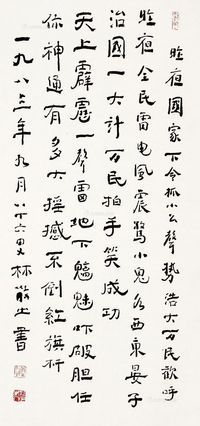 昨夜國家下令抓小公聲勢浩大万民歡呼
昨夜全民雷电風震驚小鬼各西東晏子
治國一大計万民拍手笑成功
天上霹靂一聲雷地下魑魅吓破胆任
你神通有多大摇撼不倒紅旗杆
一九八三年九月八十六叟林散之書